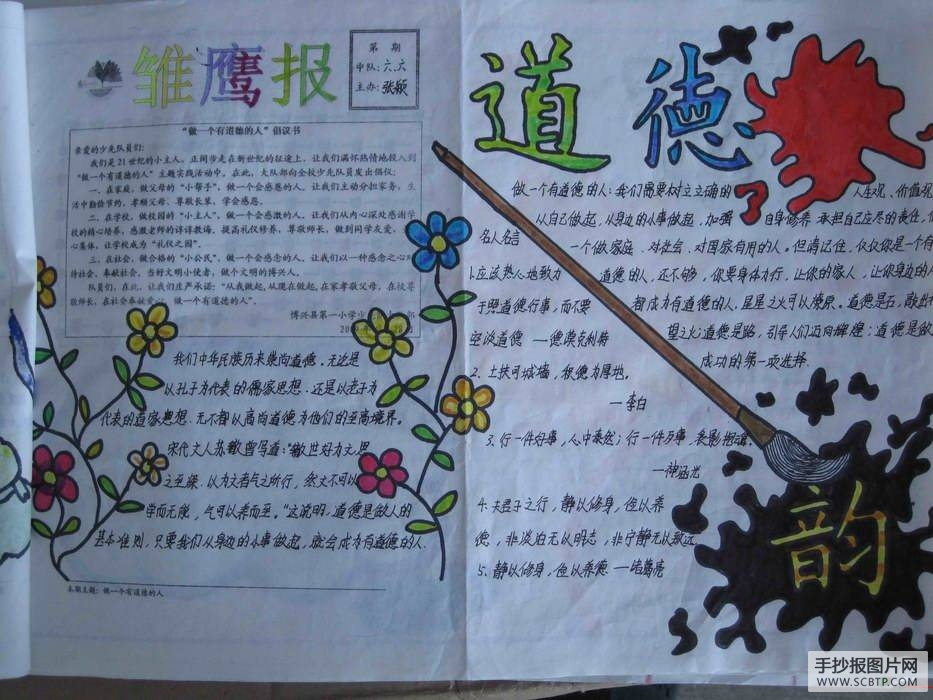 雏鹰报
第 期
中队:六.六
主办:张颖
“做一个有道德的人”倡议书
亲爱的少先队员们:
我们是21世纪的小主人，正阔步走在新世纪的征途上，让我们满怀热情地投入到
“做一个有道德的人”主题实践活动中。在此，大队部向全校少先队员发出倡仪:
一、在家庭，做父母的“小帮手”，做一个会感恩的人，让我们主动分担家务，生
活中勤俭节约，孝顺父母、尊敬长辈，学会感恩。
二、在学校，做校园的“小主人”，做一个会感激的人，让我们从内心深处感谢学
校的精心培养，感激老师的谆谆教诲，提高礼仪修养，尊敬师长，做到同学友爱，
心集体，让学校成为“礼仪之园”。
三、在社会，做合格的“小公民”，做一个会感念的人，让我们以一种感念之心
待社会，奉献社会，当好文明小使者，做个文明的博兴人。
队员们，在此，让我们庄严承诺:“从我做起,从现在做起,在家孝敬父母，在校尊
敬师长，在社会奉献爱心，做一个有道德的人”。
博兴县第一小学少 部
我们中华民族历来崇向道德，无论是
以孔子为代表的儒家思想，还是以老子为
代表的道家思想，无不都以高尚道德为他们的至高境界。
宋代大人苏辙曾写道:“辙世好为文思
之至深，以为文者气之所行，然文不可以
学而无能，气可以养而至。”这说明，道德是做人的
基本准则，只要我们从身边的小事做起，就会成为有道德的人.
本期主题：做一个有道德的人
道德
做一个有道德的人:我们需要树立正确的 人生观、价值观
从自己做起，从身边的小事做起，加强 自身修养 承担自己应尽的责任，
名人名言 一个做家庭、对社会、对国家有用的人。但请记住，仅仅你是一个有
1.应该热心地致力 道德的人，还不够，你要身体力行，让你的家人，让你身边的人
于照道德行事，而不要 都成为有道德的人，星星之火可以燎原。道德是石，敲出
空谈道德 —德谟克利特 望之火;道德是路，引导人们迈向辉煌;道德是做
成功的第一项选择.
2、土扶可城墙，积德为厚地。
—李白
3.行一件好事，心中泰然;行一件歹事，衾影抱愧。
—神涵光
4.夫君子之行，静以修身，俭以养
德，非淡泊无以明志，非宁静无以致远
5、静以修身，俭以养德 —诸葛亮
韵
手抄报图片网
WWW.SCBTP.COM